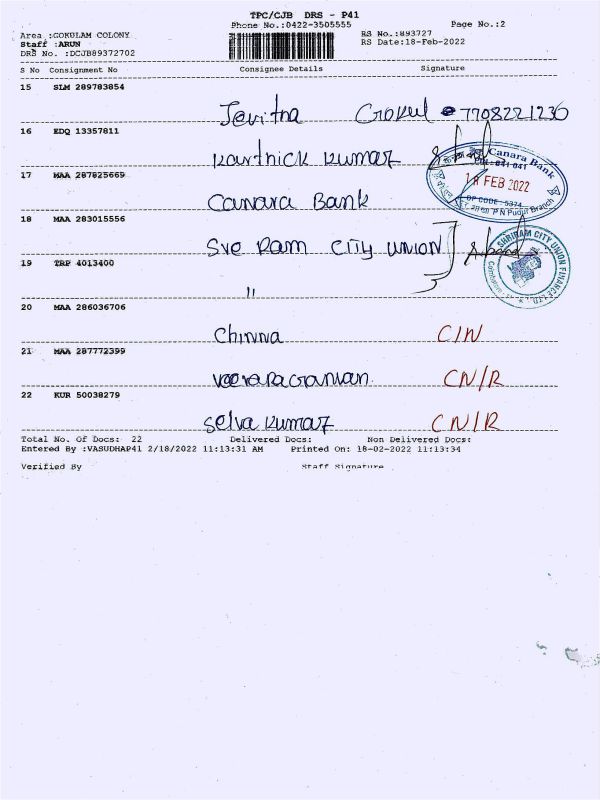 TPC/CJB DRS - P41
Phone No.:0422-3505555 Page No.:2
Area :GOKULAM COLONY RS No.:893727
Staff :ARUN RS Date:18-Feb-2022
DRS No. :DCJB89372702
S No Consignment No Consignee Details Signature
15 SLM 289783854
Jevitha Gokul 7708221236
16 EDQ 13357811
Karthick Kumar
17 MAA 287825669
Canara Bank
Canara Bank
18 FEB 2022
DP CODE - 5374
P N Pudur Branch
18 MAA 283015556
Sre Ram City Union
SHRIRAM CITY UNION FINANCE LTD
19 TRP 4013400
"
20 MAA 286036706
Chinna C/N
21 MAA 287772399
Veeraragavan. CN/R
22 KUR 50038279
Selva Kumar CN/R
Total No. Of Docs: 22 Delivered Docs: Non Delivered Docs:
Entered By :VASUDHAP41 2/18/2022 11:13:31 AM Printed On: 18-02-2022 11:13:34
Verified By Staff Signature